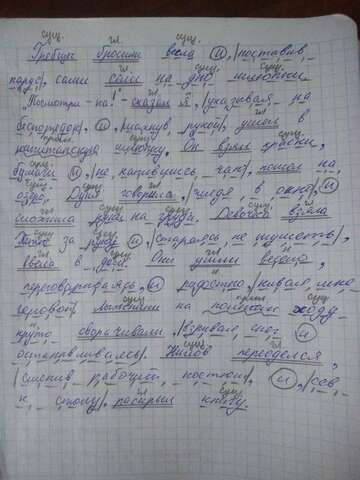 сущ. гл. сущ.
Гребцы бросили весла (и), |поставив
гл. сущ. сущ.
парус|, сами сели на дно шлюпки.
"Посмотри-ка!" - сказал я, |указывая на
беспорядок|, (и), |махнув рукой|, ушел в
капитанскую шлюпку. Он взял краски,
бумаги (и), |не напившись чаю|, пошел на
озеро. Дуня говорила, |глядя в окно|, (и)
сложила руки на груди. Девочка взяла
Катю за руку (и), |стараясь не шуметь|,
ввела в дом. Они учили весело,
переговариваясь, (и) радостно, |кивая
головой|. Лыжники на полном ходу
круто сворачивали, |взрывая снег| (и)
останавливаясь|. Жилов переоделся,
|сменив рабочий костюм|, (и), |сев
к столу|, раскрыл книгу.